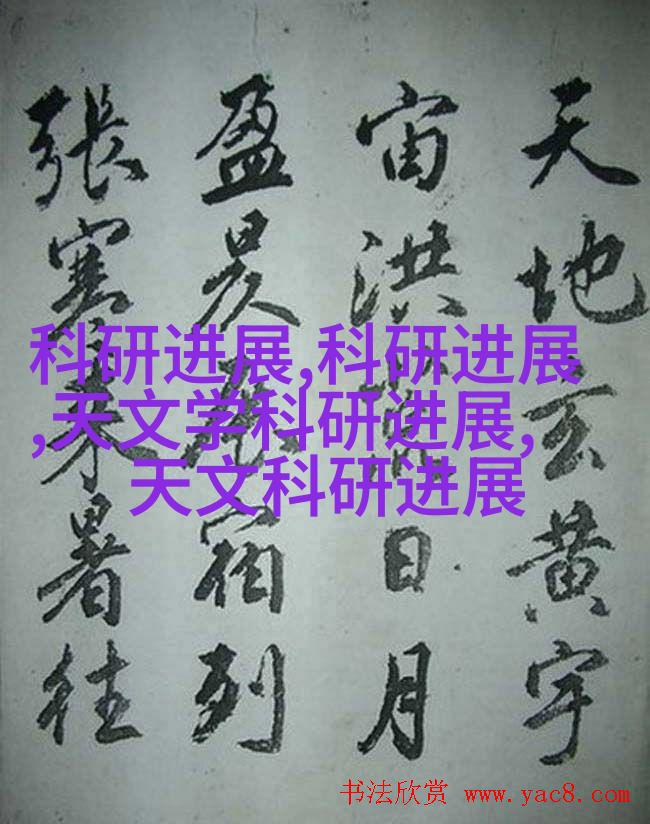 天地玄黄宇
宙洪日月
盈昃宿列
張寒来暑往
科研进展,科研进展
,天文学科研进展,
天文科研进展
书法欣赏 www.yac8.com